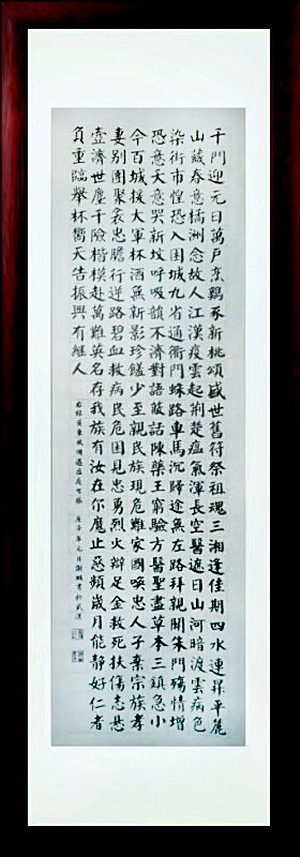 千門迎元日萬戶烹鷄豕新桃頌盛世舊符祭祖魂三湘逢佳期四水連昇平麓
山藏春意橘洲念故人江漢疫雲起荊楚瘟氣渾長空醫遮日山河暗渡雲病色
染街市惶恐入困城九省通衢門蛛路車馬沉歸途無左路拜親關朱門殤情增
恐意天意哭新墳呼吸韻不濟對語蔽話陳藥王窮驗方醫聖盡草本三鎮急小
今百城援大軍杯酒無新影珍饈少至親民族現危難家國喚忠人子棄宗族孝
妻別團聚衾忠膽行逆路碧血救病民危困見忠勇烈火辯足金救死扶傷志懸
壺濟世塵千險楷模赴萬難英名存我族有汝在尔魔止惡頻歲月能靜好仁者
負重臨舉杯嚮天告振興有繼人
遇瘟疫有感 庚子年元月謝 書於武漢